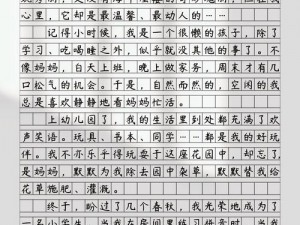 心里，它却是最温馨、最动人的……
记得小时候，我是一个很懒的孩子，除了
学习、吃喝睡之外，似乎就没其他的事了。不
像妈妈，白天上班，晚上做家务，周末才有几
口松气的机会。于是，自然而然的，空闲的我
总是喜欢静静地看妈妈忙活。
上幼儿园了，我的生活里到处都充满了欢
声笑语。玩具、书本、同学……都是我的好玩
伴。我不亦乐乎得玩耍于这座花园中，却忘了
是妈妈，默默为我撑起这片天地，默默替我给
花草施肥、灌溉。
终于，盼过了几个春秋，我光荣地成为了